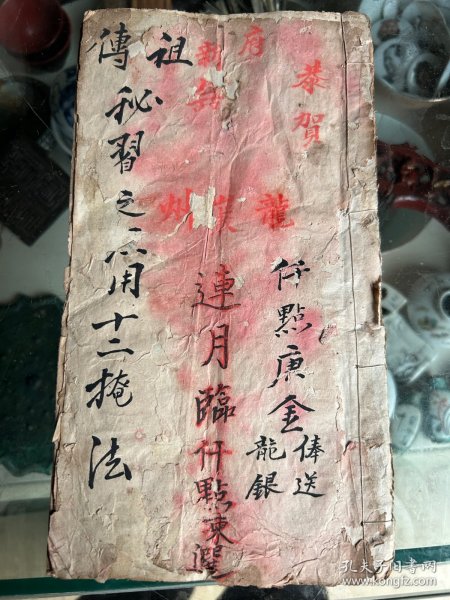 恭賀
府
新
龍
州
仟點庚金
俸送
龍銀
連月臨仟點東選
祖
傳秘習之六用十二掩法
孔夫子旧书网
www.kongfz.com